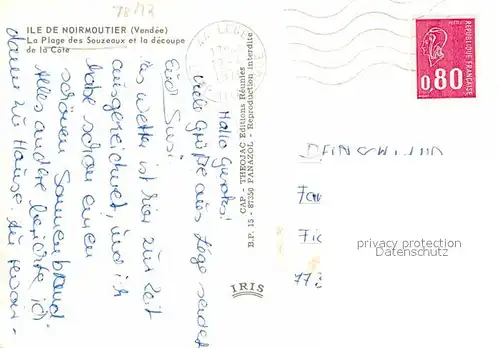 78/12
ILE DE NOIRMOUTIER (Vendée)
La Plage des Souzeaux et la découpe
de la Côte
Hallo Gundes!
viele Grüße aus Lége sendet
Euch Susi.
das Wetter ist hier zur Zeit
ausgezeichnet, und ich
habe schon einen
schönen Sonnenbrand
Alles andere berichte ich
dann zu Hause. Au revoir -
CAP - THEOJAC Editions Réunies
B.P. 15 - 87350 PANAZOL - Reproduction interdite
IRIS
0,80
Fam
77
privacy protection
Datenschutz